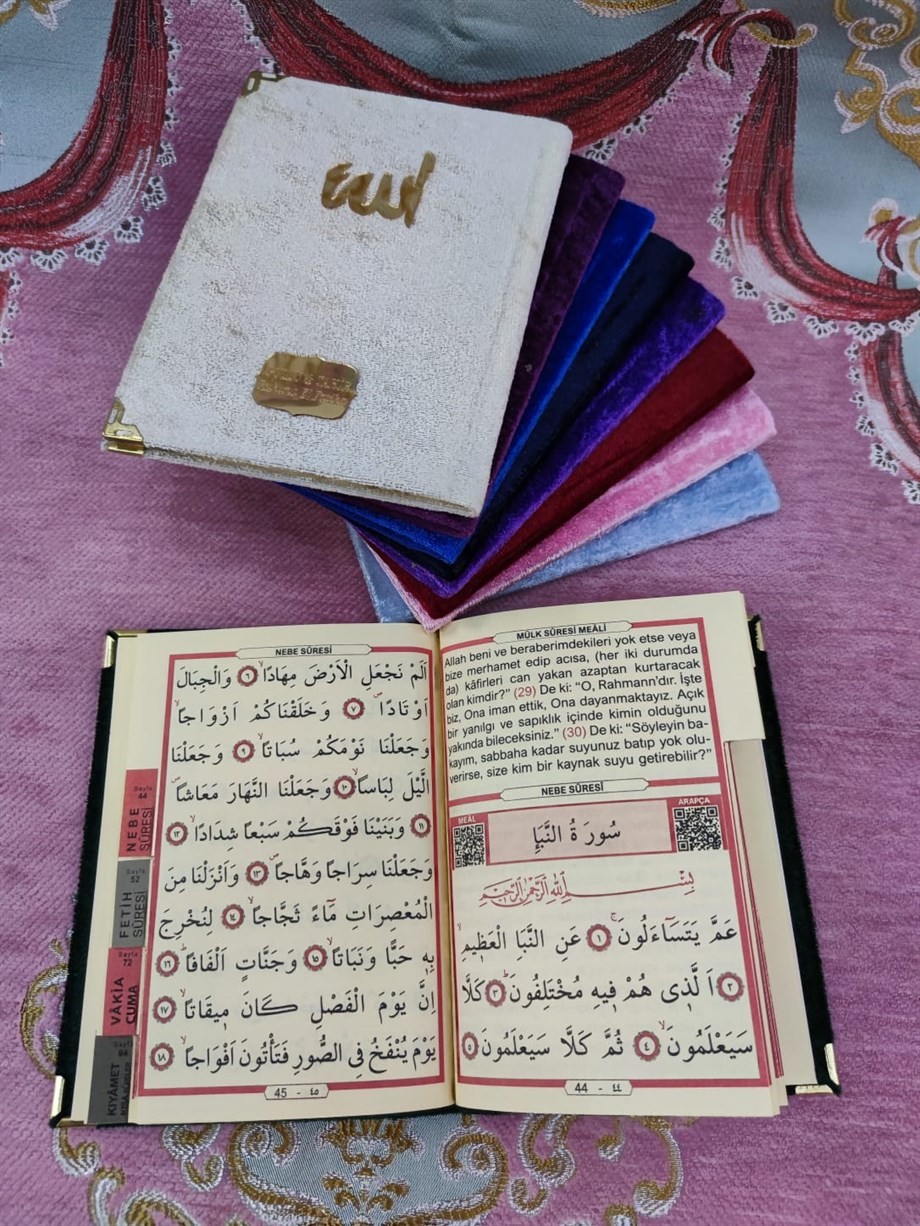 الله
MÜLK SÛRESİ MEÂLİ
Allah beni ve beraberimdekileri yok etse veya
bize merhamet edip acısa, (her iki durumda
da) kâfirleri can yakan azaptan kurtaracak
olan kimdir?” (29) De ki: “O, Rahmann’dır. İşte
biz, Ona iman ettik, Ona dayanmaktayız. Açık
bir yanılgı ve sapıklık içinde kimin olduğunu
yakında bileceksiniz.” (30) De ki: “Söyleyin ba-
kayım, sabbaha kadar suyunuz batıp yok olu-
verirse, size kim bir kaynak suyu getirebilir?”
NEBE SÛRESİ
MEÂL
ARAPÇA
سُورَةُ النَّبَأِ
بِسْمِ اللّٰهِ الرَّحْمٰنِ الرَّحِيمِ
عَمَّ يَتَسَآءَلُونَۚ ﴿١﴾ عَنِ النَّبَإِ الْعَظِيمِۙ
﴿٢﴾ اَلَّذٖى هُمْ فٖيهِ مُخْتَلِفُونَۜ ﴿٣﴾ كَلَّا
سَيَعْلَمُونَۙ ﴿٤﴾ ثُمَّ كَلَّا سَيَعْلَمُونَ ﴿٥﴾
44 - ٤٤
NEBE SÛRESİ
اَلَمْ نَجْعَلِ الْاَرْضَ مِهَادًاۙ ﴿٦﴾ وَالْجِبَالَ
اَوْتَادًاۖ ﴿٧﴾ وَخَلَقْنَاكُمْ اَزْوَاجًاۙ
وَجَعَلْنَا نَوْمَكُمْ سُبَاتًاۙ ﴿٩﴾ وَجَعَلْنَا
الَّيْلَ لِبَاسًاۙ ﴿١٠﴾ وَجَعَلْنَا النَّهَارَ مَعَاشًاۖ
﴿١١﴾ وَبَنَيْنَا فَوْقَكُمْ سَبْعًا شِدَادًاۙ ﴿١٢﴾
وَجَعَلْنَا سِرَاجًا وَهَّاجًاۖ ﴿١٣﴾ وَاَنْزَلْنَا مِنَ
الْمُعْصِرَاتِ مَآءً ثَجَّاجًاۙ ﴿١٤﴾ لِنُخْرِجَ
بِهٖ حَبًّا وَنَبَاتًاۙ ﴿١٥﴾ وَجَنَّاتٍ اَلْفَافًاۜ ﴿١٦﴾
اِنَّ يَوْمَ الْفَصْلِ كَانَ مٖيقَاتًاۙ ﴿١٧﴾
يَوْمَ يُنْفَخُ فِى الصُّورِ فَتَأْتُونَ اَفْوَاجًاۙ ﴿١٨﴾
45 - ٤٥
Sayfa
44
NEBE
SÛRESİ
Sayfa
52
FETİH
SÛRESİ
Sayfa
72
VÂKIA
CUMA
Sayfa
84
KIYÂMET